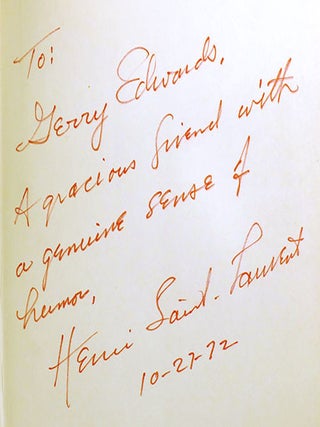 To:
Gerry Edwards,
A gracious friend with
a genuine sense of
humor,
Henri Saint-Laurent
10-27-72